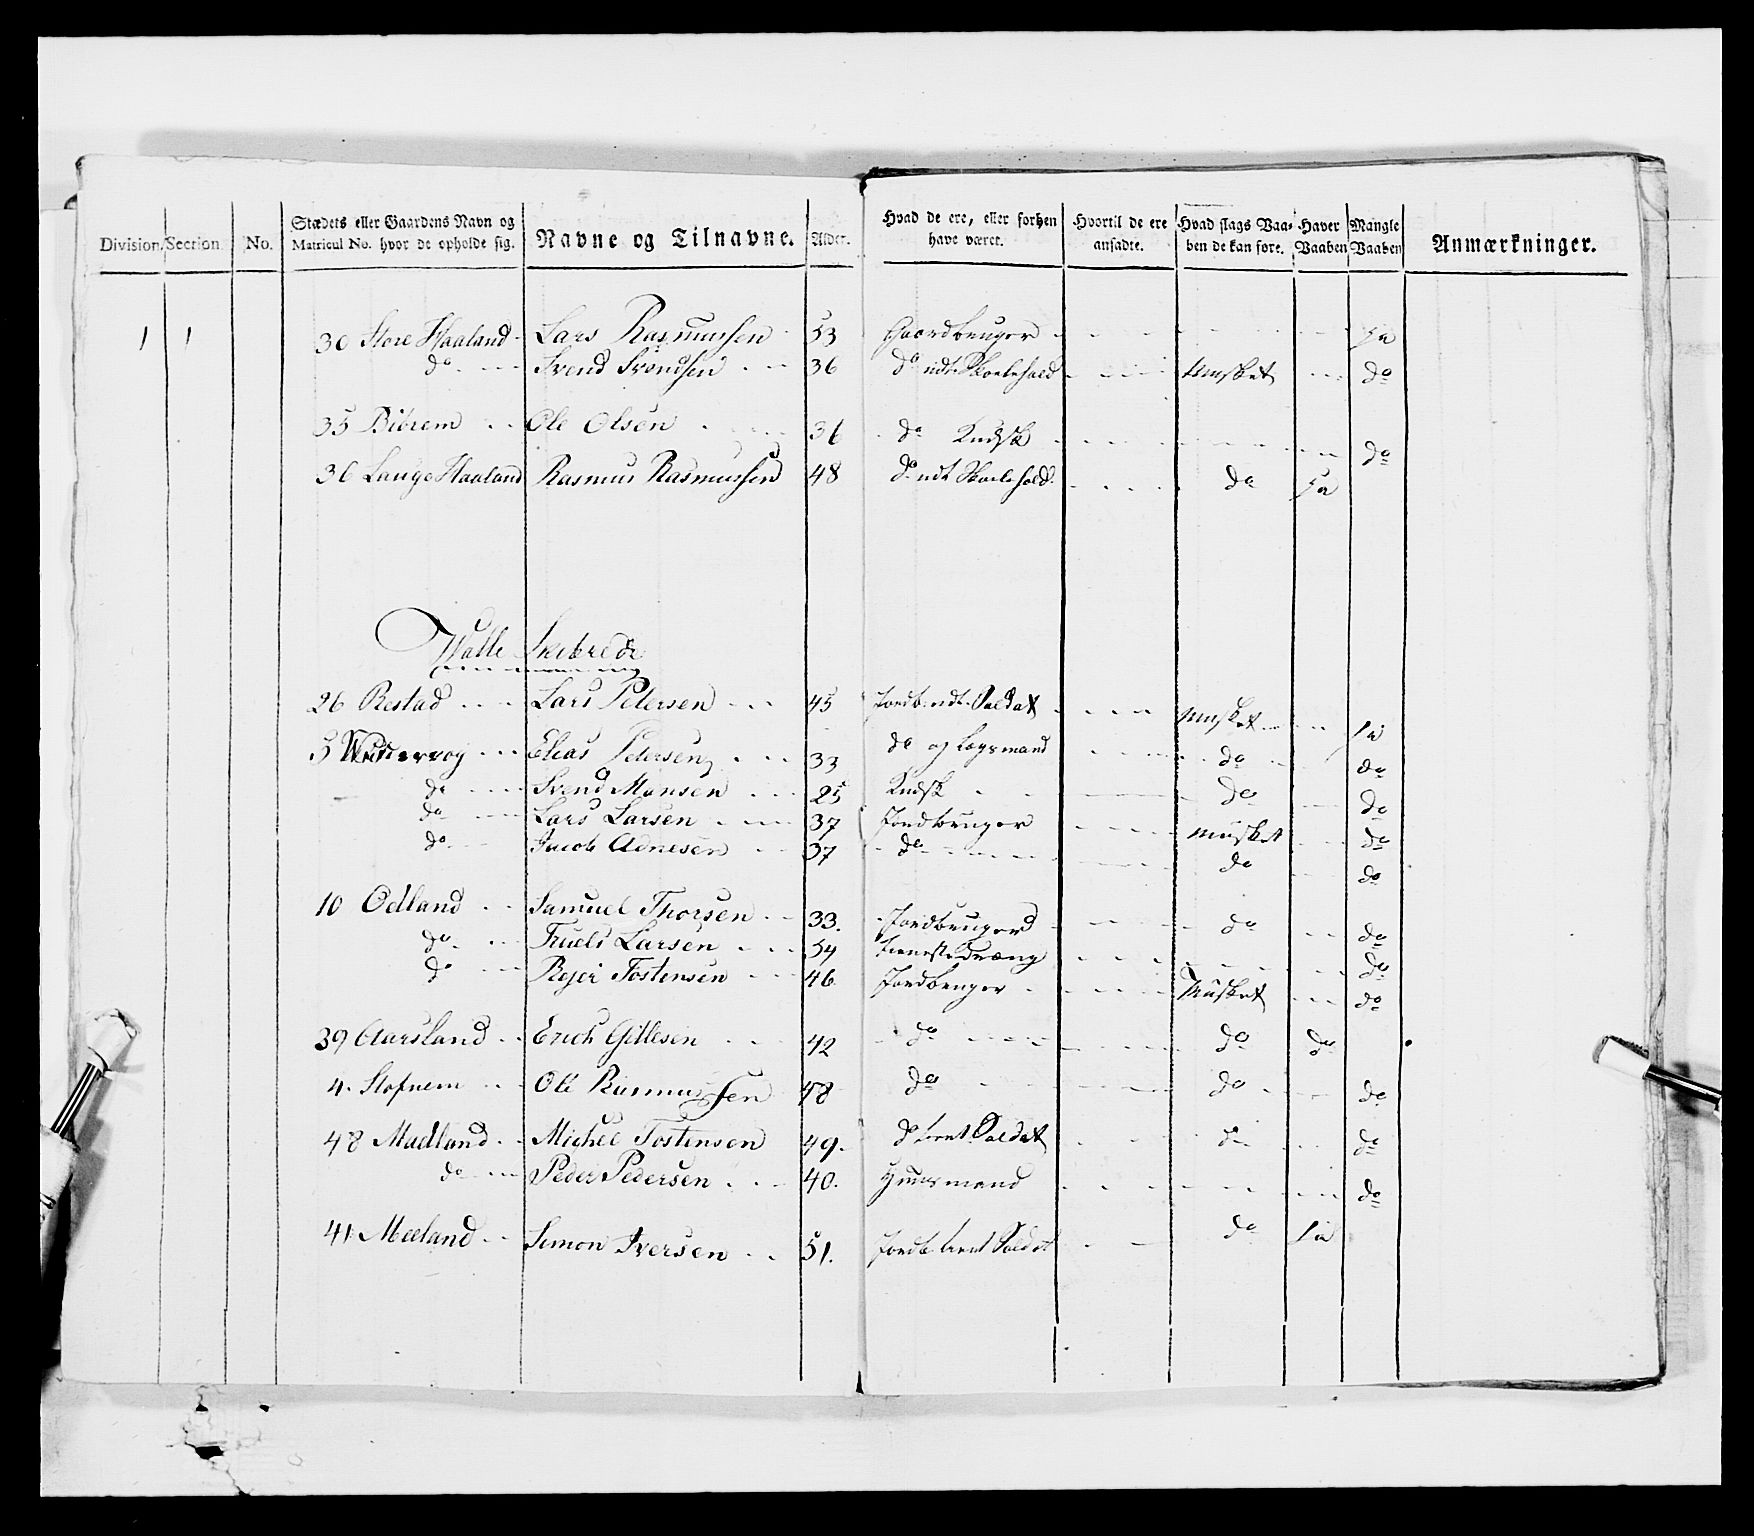 Division. Section No. Stædets eller Gaardens Navn og Matricul No. hvor de opholde sig. Navne og Tilnavne. Alder. Hvad de ere, eller forhen have været. Hvortil de ere ansadte. Hvad slags Vaaben de kan føre. Haver Vaaben Mangle Vaaben Anmærkninger.
1 1 30 Store Haaland Lars Rasmussen 53 Gaardbruger Ja
do Svend Svendsen 36 do udt. Musket do
35 Biörem Ole Olsen 36 do Kudsk do
36 Lauge Haaland Rasmus Rasmussen 48 do udt do Ja
Walle Skibrede
26 Restad Lars Petersen 45 Jordb. udt. Soldat Musket Ja
5 Elias Petersen 33 do og Lægsmand do do
do Svend Monsen 25 Kudsk do do
do Lars Larsen 37 Jordbruger Musket do
do Jacob Adnesen 37 do do do
10 Odland Samuel Thorsen 33. Jordbruger do do
do Truels Larsen 54 Tienestedræng do
do Rejer Tostensen 46 Jordbruger Musket do
39 Aarsland Erich Gitlesen 42 do do do
4. Stofnem Ole Rasmussen 48 do do do
48 Madland Michel Tostensen 49. do Soldat do do
do Peder Pedersen 40. Huusmand do
41 Meeland Simon Iversen 51. Jordb. Soldat do Ja